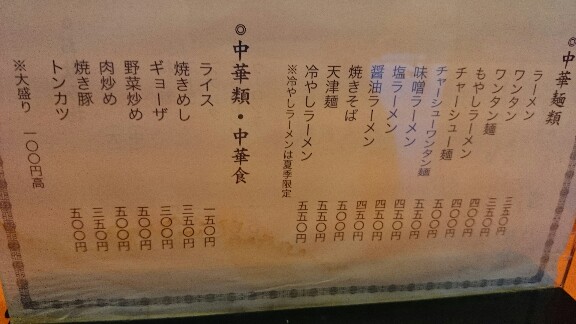 ◎中華麺類
ラーメン 三五〇円
ワンタン 三五〇円
ワンタン麺 四〇〇円
もやしラーメン 四〇〇円
チャーシュー麺 五〇〇円
チャーシューワンタン麺 五五〇円
味噌ラーメン 四五〇円
塩ラーメン 四五〇円
醤油ラーメン 四五〇円
焼きそば 五〇〇円
天津麺 五五〇円
冷やしラーメン 五五〇円
※冷やしラーメンは夏季限定
◎中華類・中華食
ライス 一五〇円
焼きめし 三五〇円
ギョーザ 三〇〇円
野菜炒め 五〇〇円
肉炒め 五〇〇円
焼き豚 三五〇円
トンカツ 五〇〇円
※大盛り 一〇〇円高